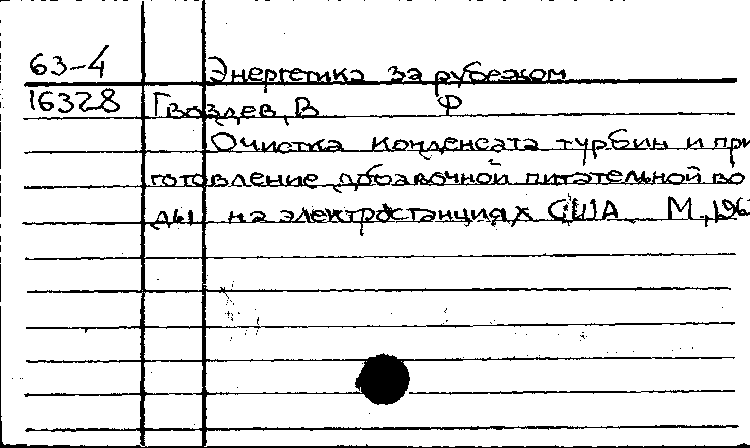 63-4 Энергетика за рубежом
16328 Гвоздев, В Ф
Очистка конденсата турбин и при
готовление добавочной питательной во
ды на электростанциях США М, 196